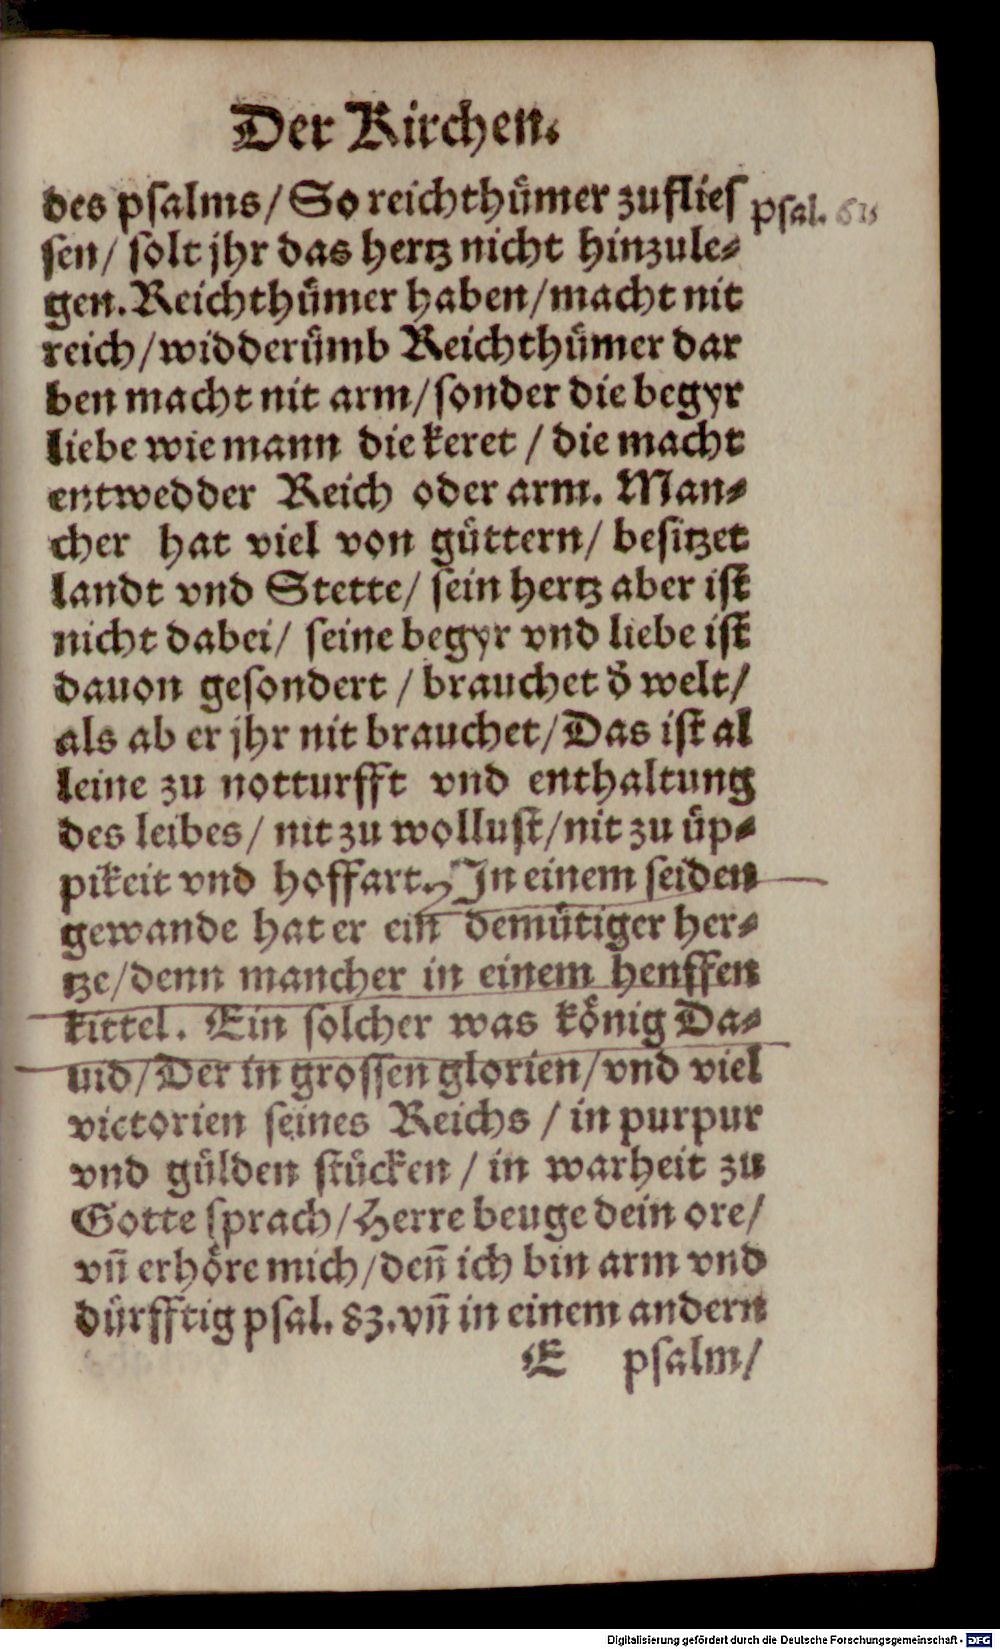 Der Kirchen.
des psalms/ So reichthuͤmer zuflies
psal. 61
sen/ solt jhr das hertz nicht hinzule⸗
gen. Reichthuͤmer haben/macht nit
reich/widderuͤmb Reichthuͤmer dar
ben macht nit arm/sonder die begyr
liebe wie mann die keret / die macht
entwedder Reich oder arm. Man⸗
cher hat viel von guͤttern/ besitzet
landt vnd Stette/ sein hertz aber ist
nicht dabei/ seine begyr vnd liebe ist
dauon gesondert / brauchet d̄ welt/
als ab er jhr nit brauchet/Das ist al
leine zu notturfft vnd enthaltung
des leibes/ nit zu wollust/nit zu uͤp⸗
pikeit vnd hoffart. In einem seiden
gewande hat er ein demuͤtiger her⸗
tze/denn mancher in einem henffen
kittel. Ein solcher was koͤnig Da⸗
uid/Der in grossen glorien/vnd viel
victorien seines Reichs / in purpur
vnd guͤlden stuͤcken / in warheit zu
Gotte sprach/Herre beuge dein ore/
vn̄ erhoͤre mich/den̄ ich bin arm vnd
duͤrfftig psal. 83. vn̄ in einem andern
E psalm/
Digitalisierung gefördert durch die Deutsche Forschungsgemeinschaft - DFG